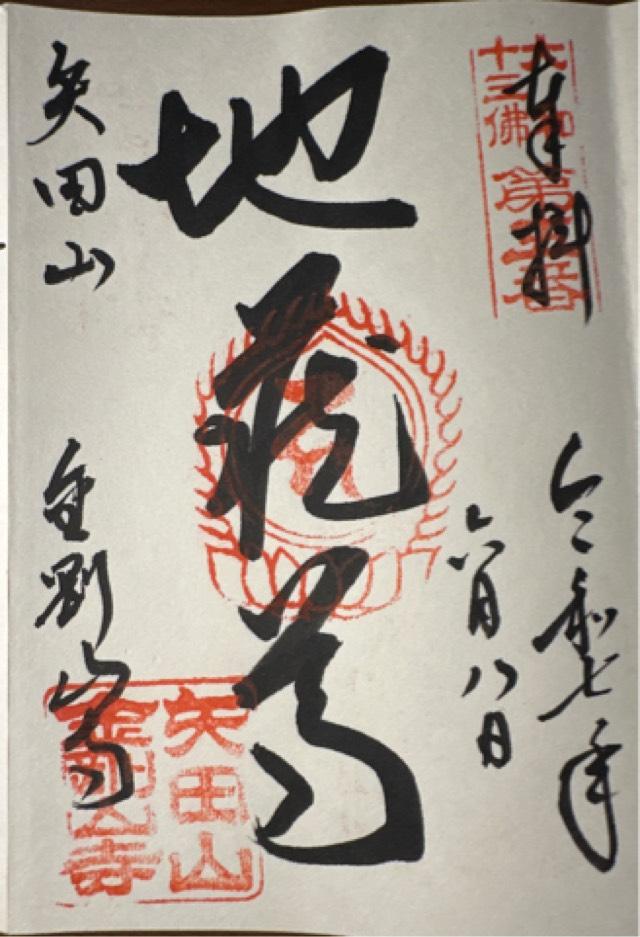 奉拝
大和
十三佛
第五番
令和七年
六月八日
地蔵尊
矢田山
金剛山寺
矢田山
金剛山寺